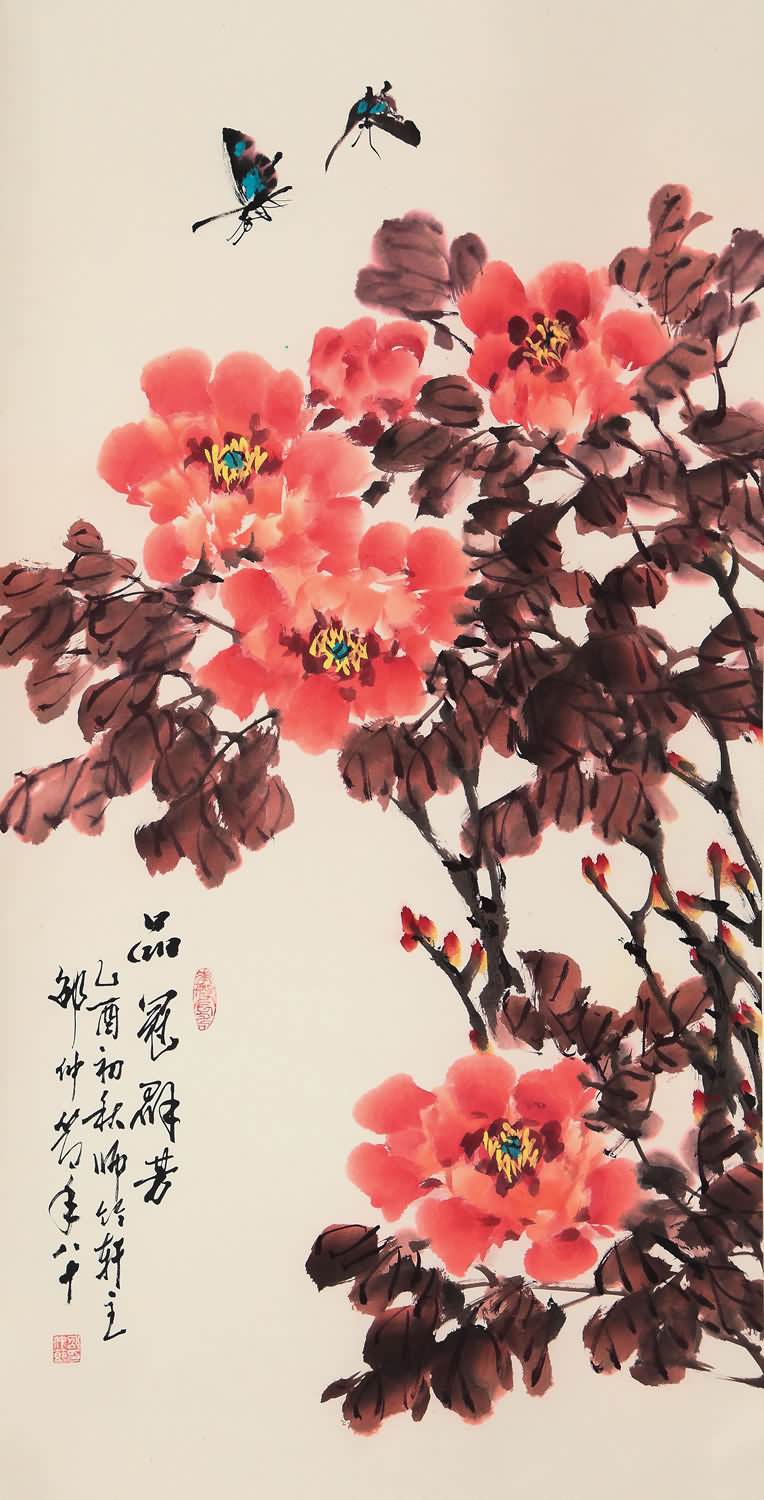 品冠群芳
乙酉初秋师竹轩主
邵仲节年八十